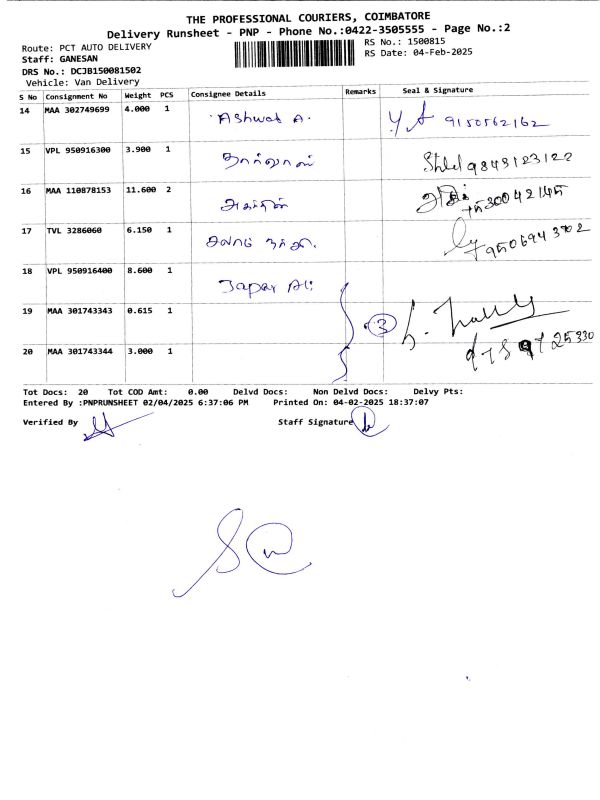 THE PROFESSIONAL COURIERS, COIMBATORE
Delivery Runsheet - PNP - Phone No.:0422-3505555 - Page No.:2
Route: PCT AUTO DELIVERY
RS No.: 1500815
Staff: GANESAN
RS Date: 04-Feb-2025
DRS No.: DCJB150081502
Vehicle: Van Delivery
S No Consignment No Weight PCS Consignee Details Remarks Seal & Signature
14 MAA 302749699 4.000 1 Ashwat A. 9150562162
15 VPL 950916300 3.900 1 9843123122
16 MAA 110878153 11.600 2
17 TVL 3286060 6.150 1
18 VPL 950916400 8.600 1 Japar Ali
19 MAA 301743343 0.615 1 3
20 MAA 301743344 3.000 1
Tot Docs: 20 Tot COD Amt: 0.00 Delvd Docs: Non Delvd Docs: Delvy Pts:
Entered By :PNPRUNSHEET 02/04/2025 6:37:06 PM Printed On: 04-02-2025 18:37:07
Verified By Staff Signature